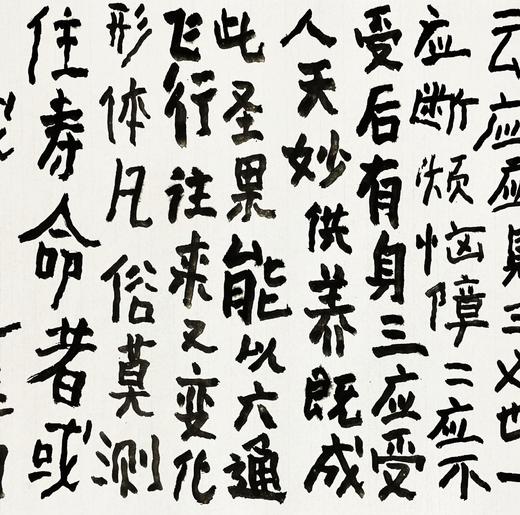 云应应具三义也一
应断烦恼障二应不
受后有身三应受
人天妙供养既成
此圣果能以六通
飞行往来又变化
形体凡俗莫测
住寿命者或